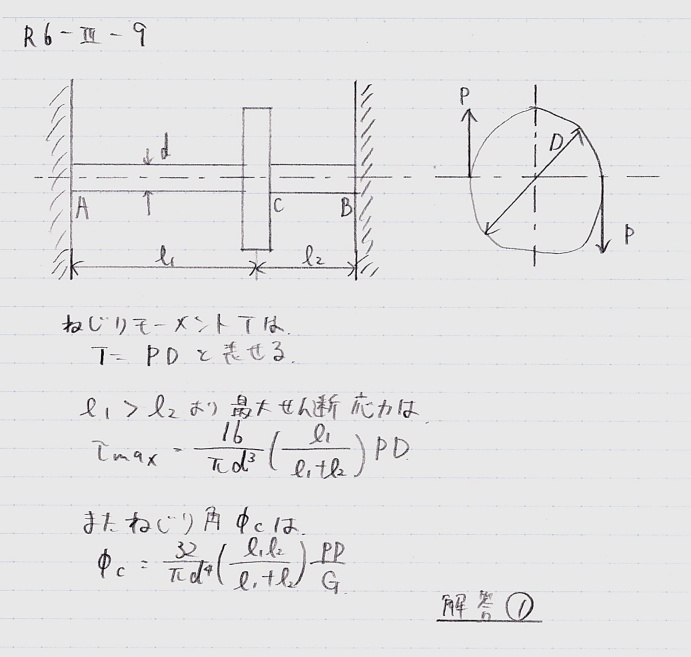 R6-Ⅲ-9
P
d
D
A
C
B
P
l₁
l₂
ねじりモーメントTは
T= PDと表せる.
l₁ > l₂より最大せん断応力は
τmax = 16/πd³ (l₁/l₁+l₂) PD
またねじり角φcは.
φc = 32/πd⁴ (l₁l₂/l₁+l₂) PD/G
解答①